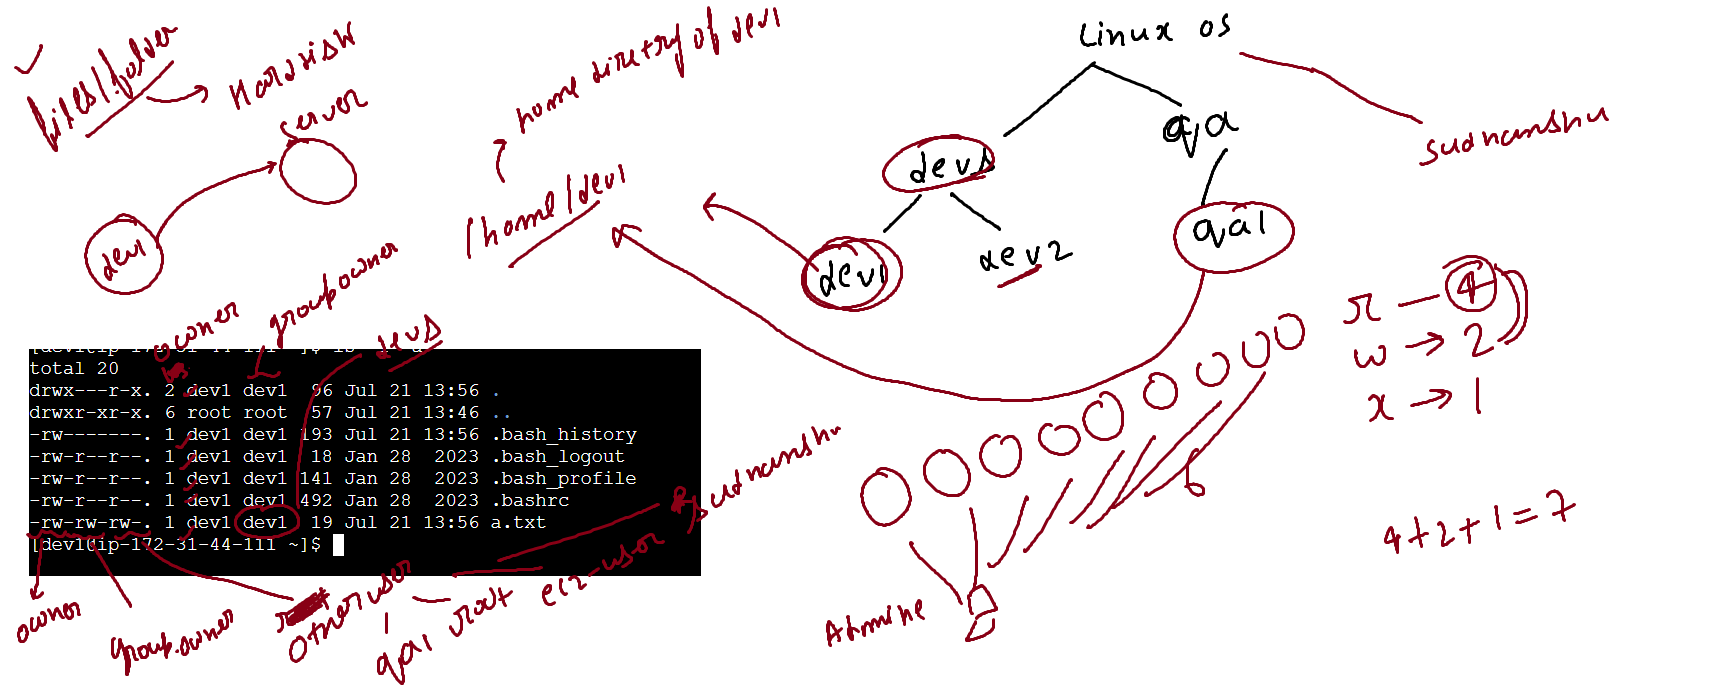 files/folder
Harddisk
server
dev1
home directry of dev1
/home/dev1
Linux os
devs
qa
sudhanshu
dev1
dev2
qa1
r - 4
w → 2
x → 1
4+2+1=7
6
owner
groupowner
devs
total 20
drwx---r-x. 2 dev1 dev1  96 Jul 21 13:56 .
drwxr-xr-x. 6 root root  57 Jul 21 13:46 ..
-rw-------. 1 dev1 dev1 193 Jul 21 13:56 .bash_history
-rw-r--r--. 1 dev1 dev1  18 Jan 28  2023 .bash_logout
-rw-r--r--. 1 dev1 dev1 141 Jan 28  2023 .bash_profile
-rw-r--r--. 1 dev1 dev1 492 Jan 28  2023 .bashrc
-rw-rw-rw-. 1 dev1 dev1  19 Jul 21 13:56 a.txt
[dev1@ip-172-31-44-111 ~]$
owner
group.owner
other user
qa1 root ec2-user sudhanshu